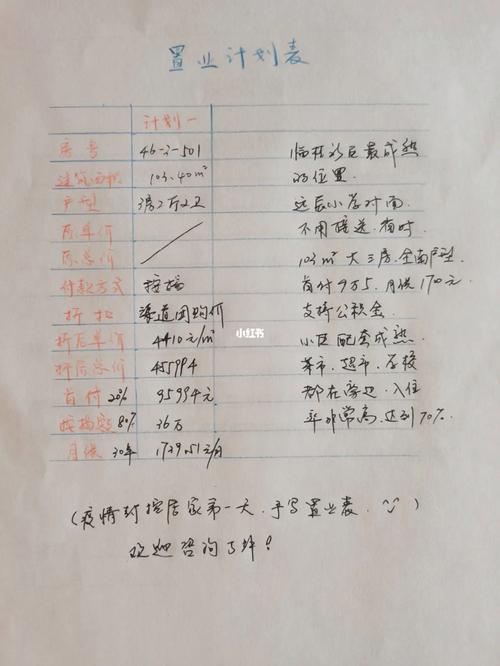 置业计划表
计划一
房号 46-2-501 临桂新区最成熟
建筑面积 103.40m² 的位置.
户型 3房2厅2卫 远辰小学对面
原单价 不用接送,省时
原总价 103m²大三房,全南户型
付款方式 按揭 首付9万5,月供1700元
折扣 渠道团购价 支持公积金
折后单价 4410元/m² 小区配套成熟
折后总价 455994 菜市,超市,学校
首付20% 95994元 都在旁边,入住
按揭额80% 36万 率非常高,达到70%
月供30年 1739.51元/月
(疫情封控居家第一天,手写置业表.)
欢迎咨询了解!
小红书